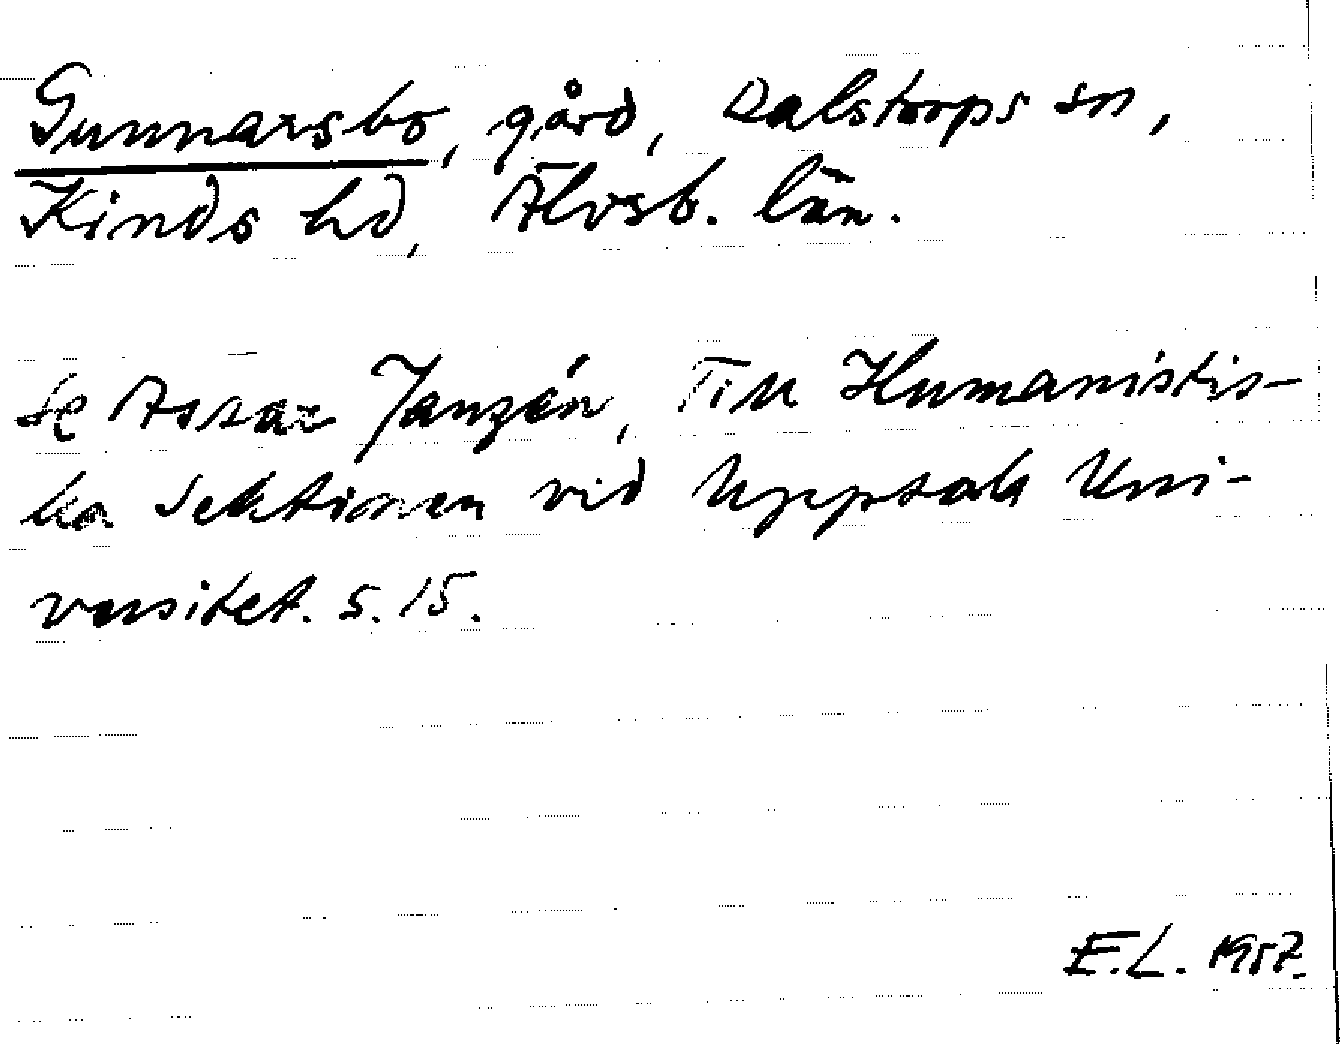 Gunnarsbo, gård, Dalstorps sn,
Kinds hd, Älvsb. län.
Se Assar Janzén, Till Humanistis-
ka Sektionen vid Uppsala Uni-
versitet. s. 15.
E.L. 1957.